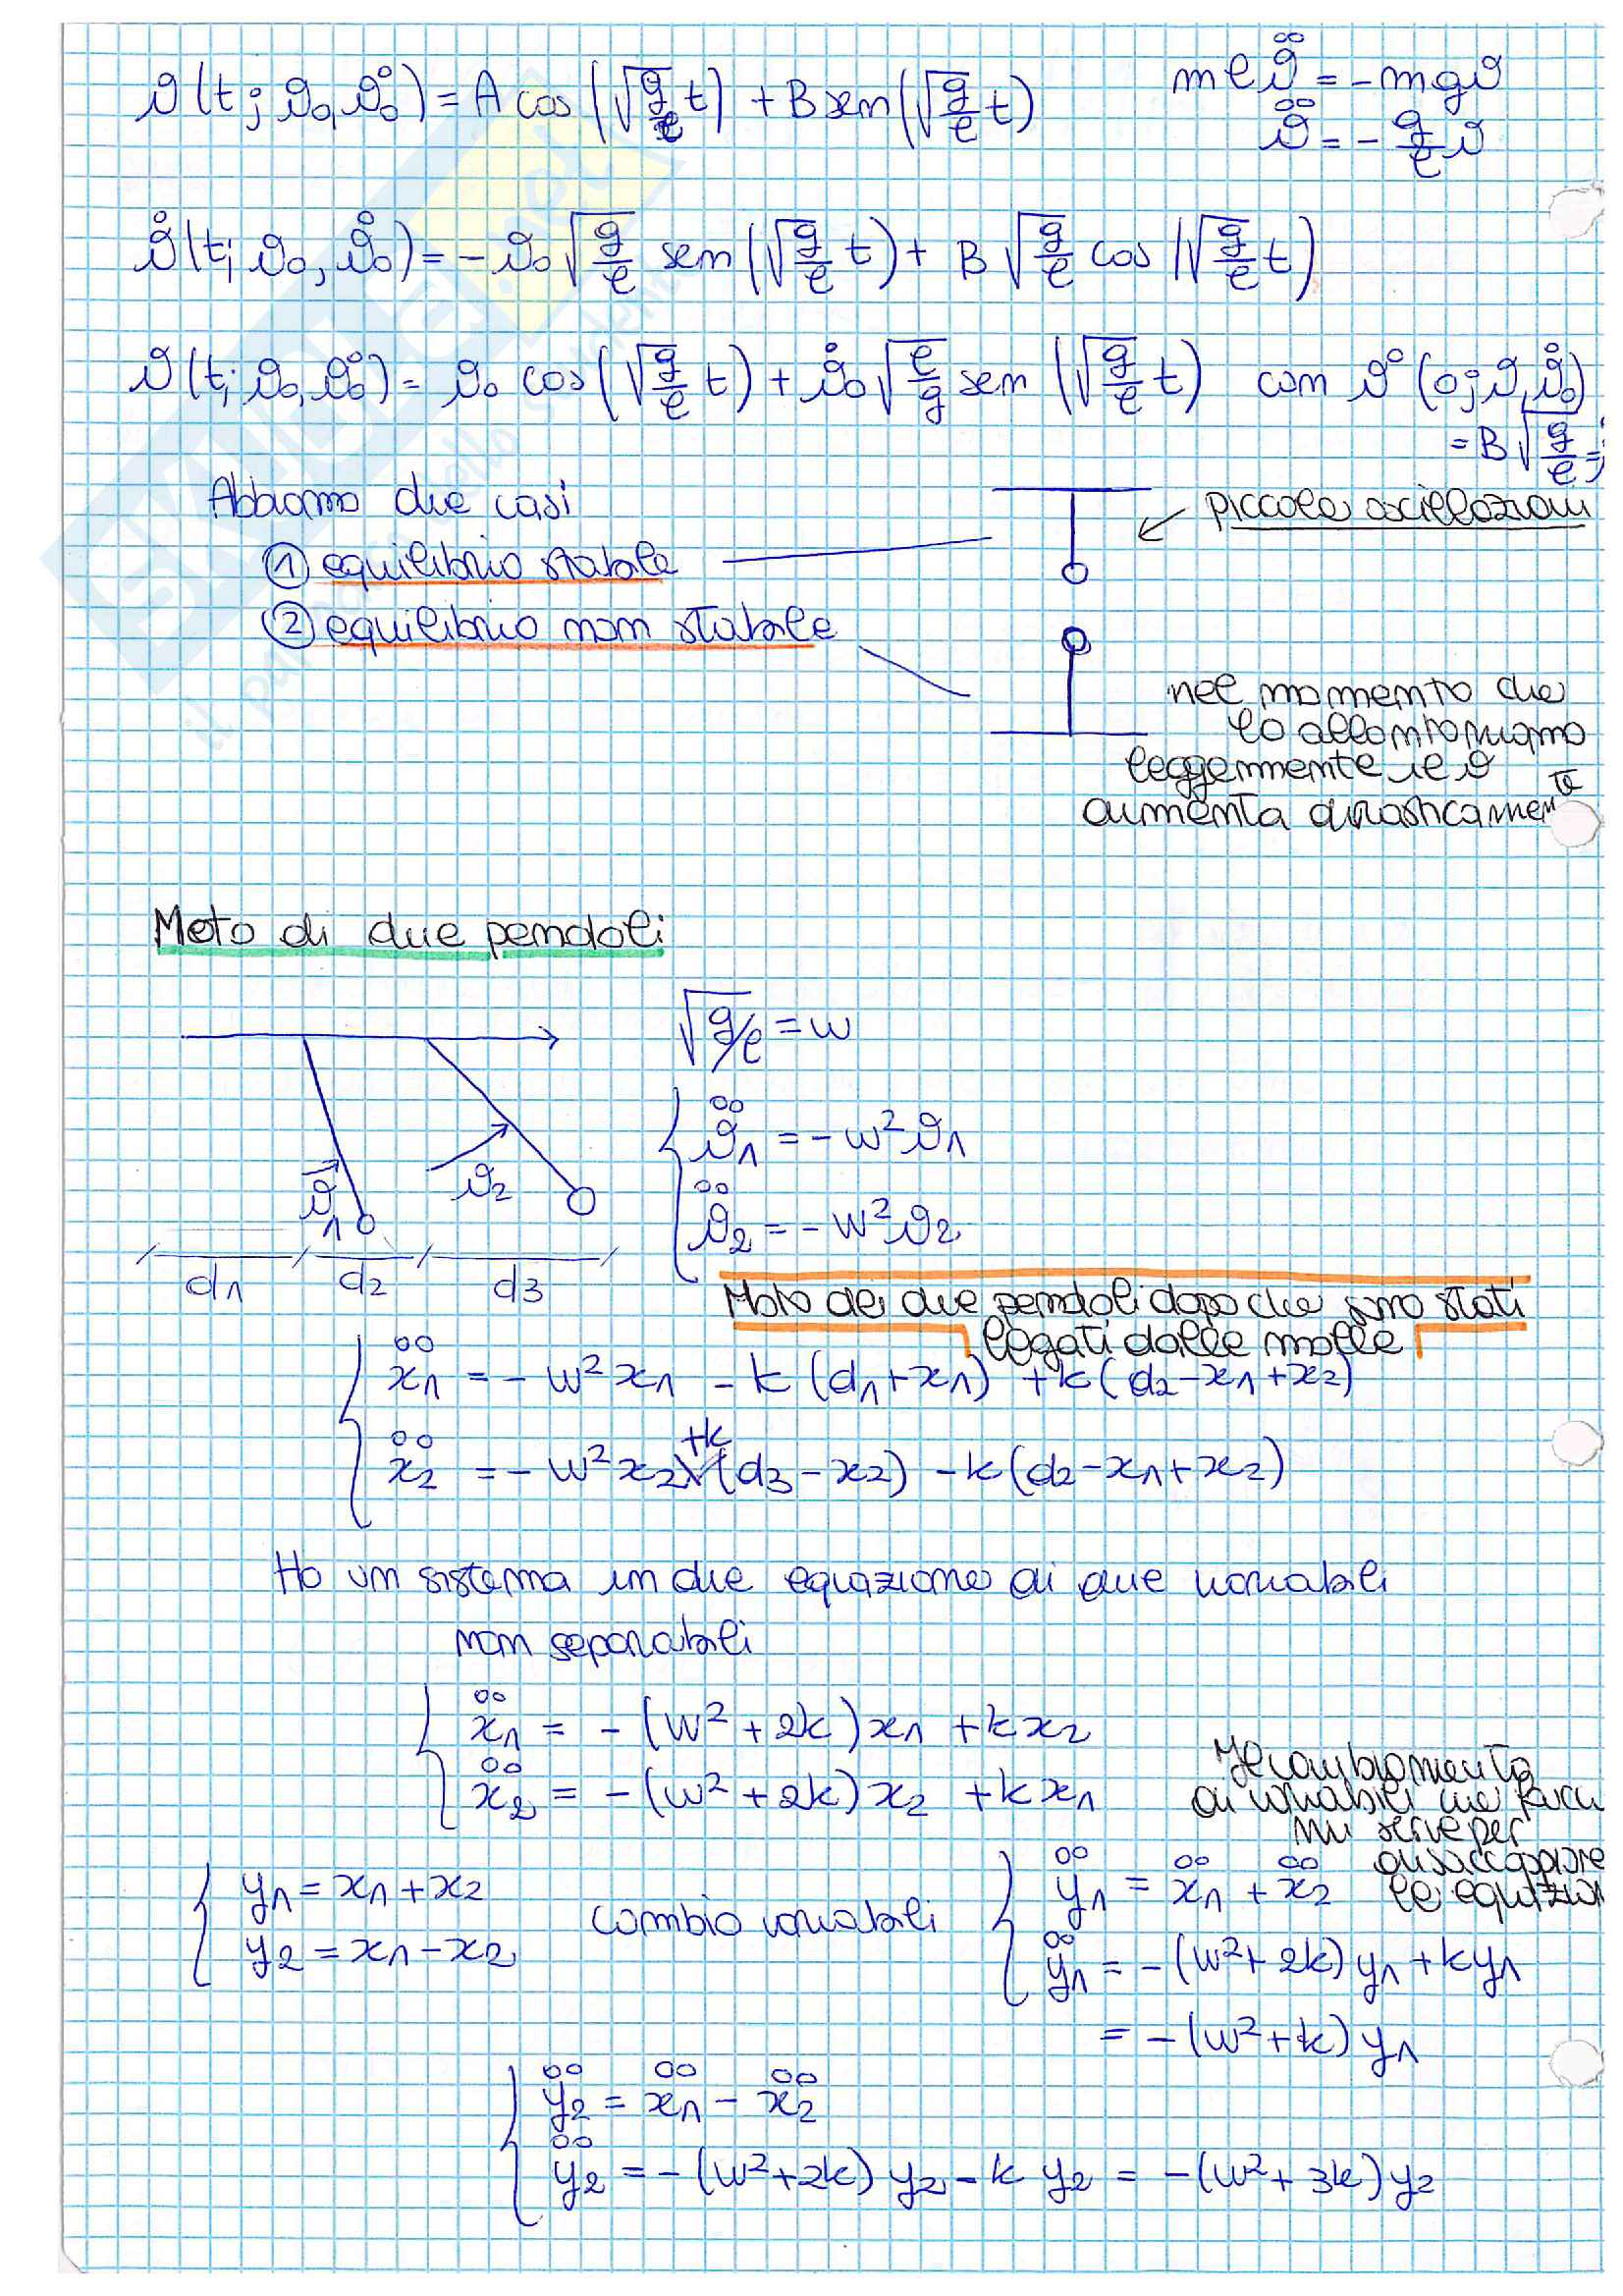 ϑ(t; ϑ0, ϑ̊0) = A cos(√(g/ℓ) t) + B sen(√(g/ℓ) t)
mℓϑ̈ = -mgϑ
ϑ̈ = - g/ℓ ϑ
ϑ̊(t; ϑ0, ϑ̊0) = -ϑ0 √(g/ℓ) sen(√(g/ℓ) t) + B √(g/ℓ) cos(√(g/ℓ) t)
ϑ(t; ϑ0, ϑ̊0) = ϑ0 cos(√(g/ℓ) t) + ϑ̊0 √(ℓ/g) sen(√(g/ℓ) t) con ϑ̊(0; ϑ, ϑ̊0)
= B √(g/ℓ) =
Abbiamo due casi
piccole oscillazioni
① equilibrio stabile
② equilibrio non stabile
nel momento che
lo allontaniamo
leggermente
aumenta drasticamente
Moto di due pendoli
√(g/ℓ) = w
ϑ̈1 = -w²ϑ1
ϑ1
ϑ2
ϑ̈2 = -w²ϑ2
d1 d2 d3
Moto dei due pendoli dopo che sono stati
legati dalle molle
ẍ1 = -w²x1 - k(d1+x1) + k(d2-x1+x2)
ẍ2 = -w²x2 +k (d3-x2) - k(d2-x1+x2)
Ho un sistema in due equazione di due variabili
non separabili
ẍ1 = -(w²+2k)x1 + kx2
ẍ2 = -(w²+2k)x2 + kx1
Il cambiamento
di variabili che faccio
mi serve per
disaccoppiare
le equazioni
y1 = x1+x2
y2 = x1-x2
cambio variabili
ÿ1 = ẍ1 + ẍ2
ÿ1 = -(w²+2k)y1 + ky1
= -(w²+k)y1
ÿ2 = ẍ1 - ẍ2
ÿ2 = -(w²+2k)y2 - ky2 = -(w²+3k)y2